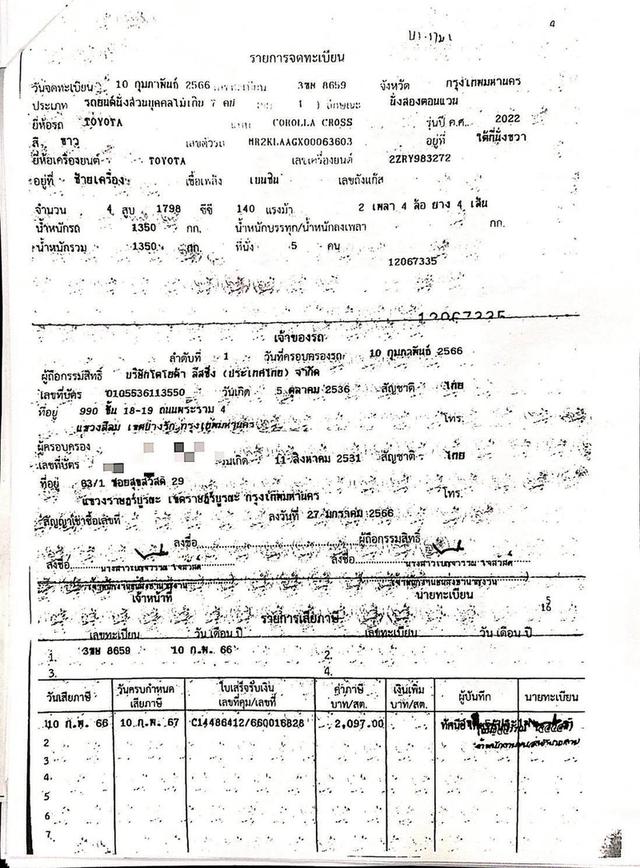 รายการจดทะเบียน
วันจดทะเบียน 10 กุมภาพันธ์ 2566 เลขทะเบียน 3ขห 8659 จังหวัด กรุงเทพมหานคร
ประเภท รถยนต์นั่งส่วนบุคคลไม่เกิน 7 คน ( 1 ) ลักษณะ นั่งสองตอนแวน
ยี่ห้อรถ TOYOTA แบบ COROLLA CROSS รุ่นปี ค.ศ. 2022
สี ขาว เลขตัวรถ MR2KLAAGX00063603 อยู่ที่ ใต้ที่นั่งขวา
ยี่ห้อเครื่องยนต์ TOYOTA เลขเครื่องยนต์ 2ZRY983272
อยู่ที่ ซ้ายเครื่อง เชื้อเพลิง เบนซิน เลขถังแก๊ส
จำนวน 4 สูบ 1798 ซีซี 140 แรงม้า 2 เพลา 4 ล้อ ยาง 4 เส้น
น้ำหนักรถ 1350 กก. น้ำหนักบรรทุก/น้ำหนักลงเพลา กก.
น้ำหนักรวม 1350 กก. ที่นั่ง 5 คน
12067335
12067335
เจ้าของรถ
ลำดับที่ 1 วันที่ครอบครองรถ 10 กุมภาพันธ์ 2566
ผู้ถือกรรมสิทธิ์ บริษัทโตโยต้า ลีสซิ่ง (ประเทศไทย) จำกัด
เลขที่บัตร 0105536113550 วันเกิด 5 ตุลาคม 2536 สัญชาติ ไทย
ที่อยู่ 990 ชั้น 18-19 ถนนพระราม 4
แขวงสีลม เขตบางรัก กรุงเทพมหานคร โทร.
ผู้ครอบครอง
เลขที่บัตร วันเกิด 11 สิงหาคม 2531 สัญชาติ ไทย
ที่อยู่ 63/1 ซอยสุขสวัสดิ์ 29
แขวงราษฎร์บูรณะ เขตราษฎร์บูรณะ กรุงเทพมหานคร โทร.
สัญญาเช่าซื้อเลขที่ ลงวันที่ 27 มกราคม 2566
ลงชื่อ ผู้ถือกรรมสิทธิ์
ลงชื่อ ลงชื่อ
เจ้าหน้าที่ นายทะเบียน
รายการเสียภาษี
เลขทะเบียน วัน เดือน ปี เลขทะเบียน วัน เดือน ปี
1. 3ขห 8659 10 ก.พ. 66 2.
3. 4.
วันเสียภาษี วันครบกำหนดเสียภาษี ใบเสร็จรับเงิน เลขที่คุม/เลขที่ ค่าภาษี บาท/สต. เงินเพิ่ม บาท/สต. ผู้บันทึก นายทะเบียน
10 ก.พ. 66 10 ก.พ. 67 C14486412/660016828 2,097.00
2
3
4
5
6
7